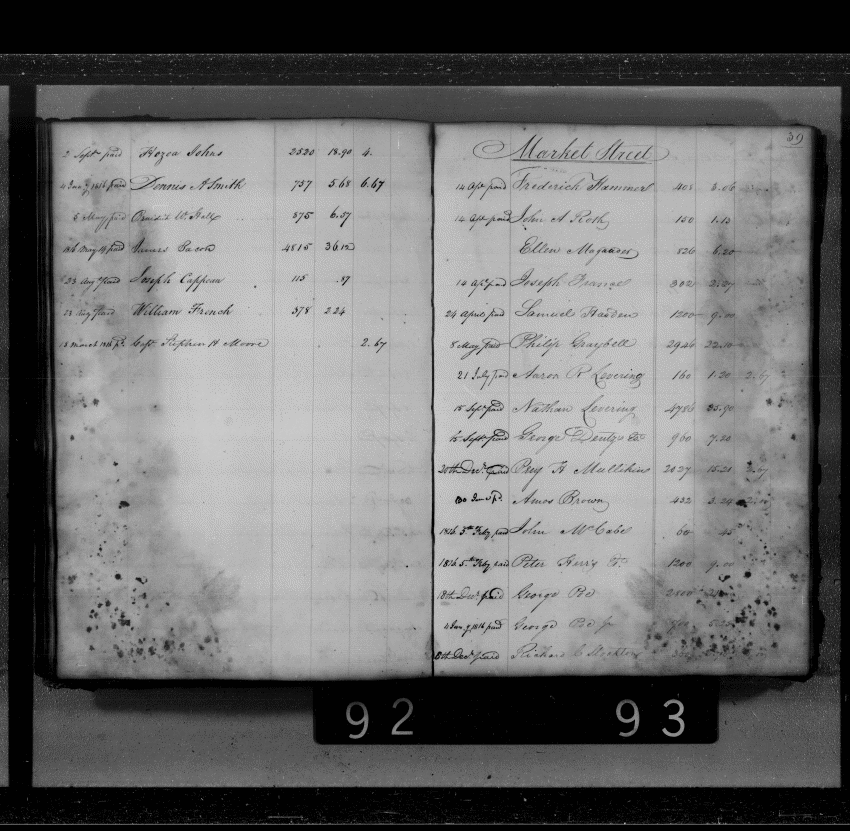 2 Sept paid Hozea Johns 2520 18.90 4.
4 Jany 1816 paid Dennis A Smith 757 5.68 6.67
8 May paid W. Hall 875 6.57
1816 May paid James 4815 36.12
23 Augt paid Joseph Cappeau 115 .87
28 Augt paid William French 378 2.24
18 March 1816 pd. Capt. Stephen H Moore 2.67
39
Market Street
14 Apl paid Frederick Hammer 408 3.06
14 Apl paid John A Roth 150 1.13
Ellen Magauder 826 6.20
14 Apl paid Joseph France 302 2.27
24 April paid Samuel Hadden 1200 9.00
8 May paid Philip Graybell 2946 22.10
21 July paid Aaron R Levering 160 1.20 2.67
15 Sept paid Nathan Levering 4786 35.90
Sept paid George 960 7.20
20th Decr. paid Pery H Mullikins 2027 15.21 2.67
30 pd. Amos Brown 432 3.24 2.00
1816 3rd Feby paid John McCabe 60 45
1816 5th Feby paid Peter 1200 9.00
18th Decr. paid George Poe
4 Jany 1816 paid George Poe Jr
Decr. paid Richard C Stockton
92 93